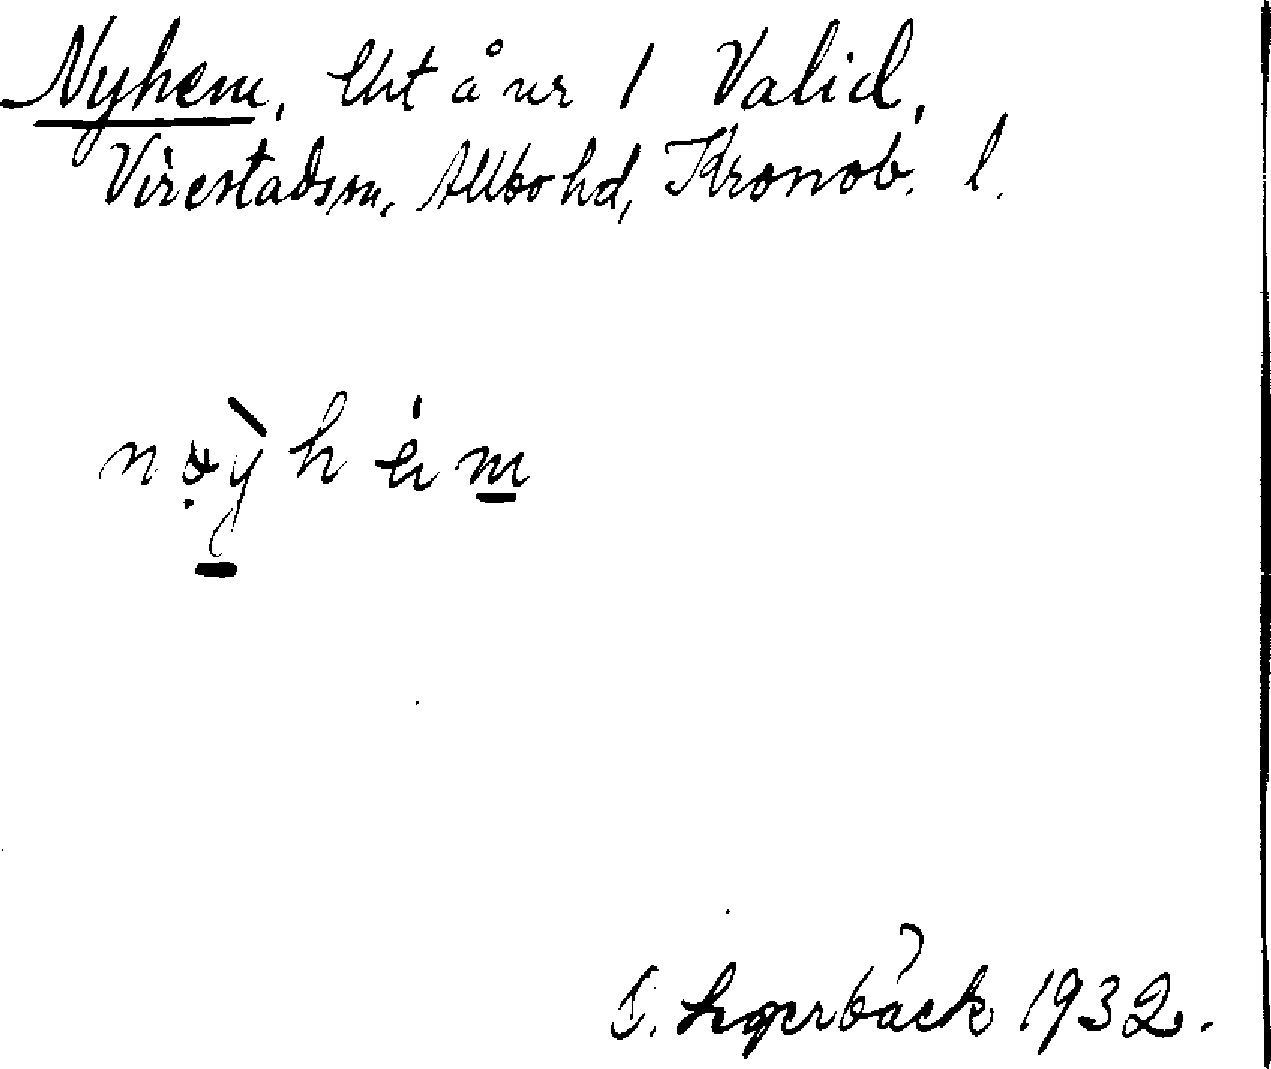 Nyhem, lht å nr 1 Valid,
Virestads sn, Allbo hd, Kronob. l.
nøỳhèm
S. Segerbäck 1932.